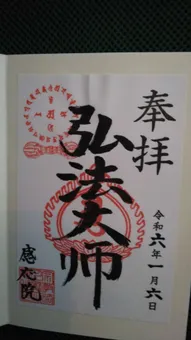 奉拝
弘法大師
令和六年一月六日
感応院